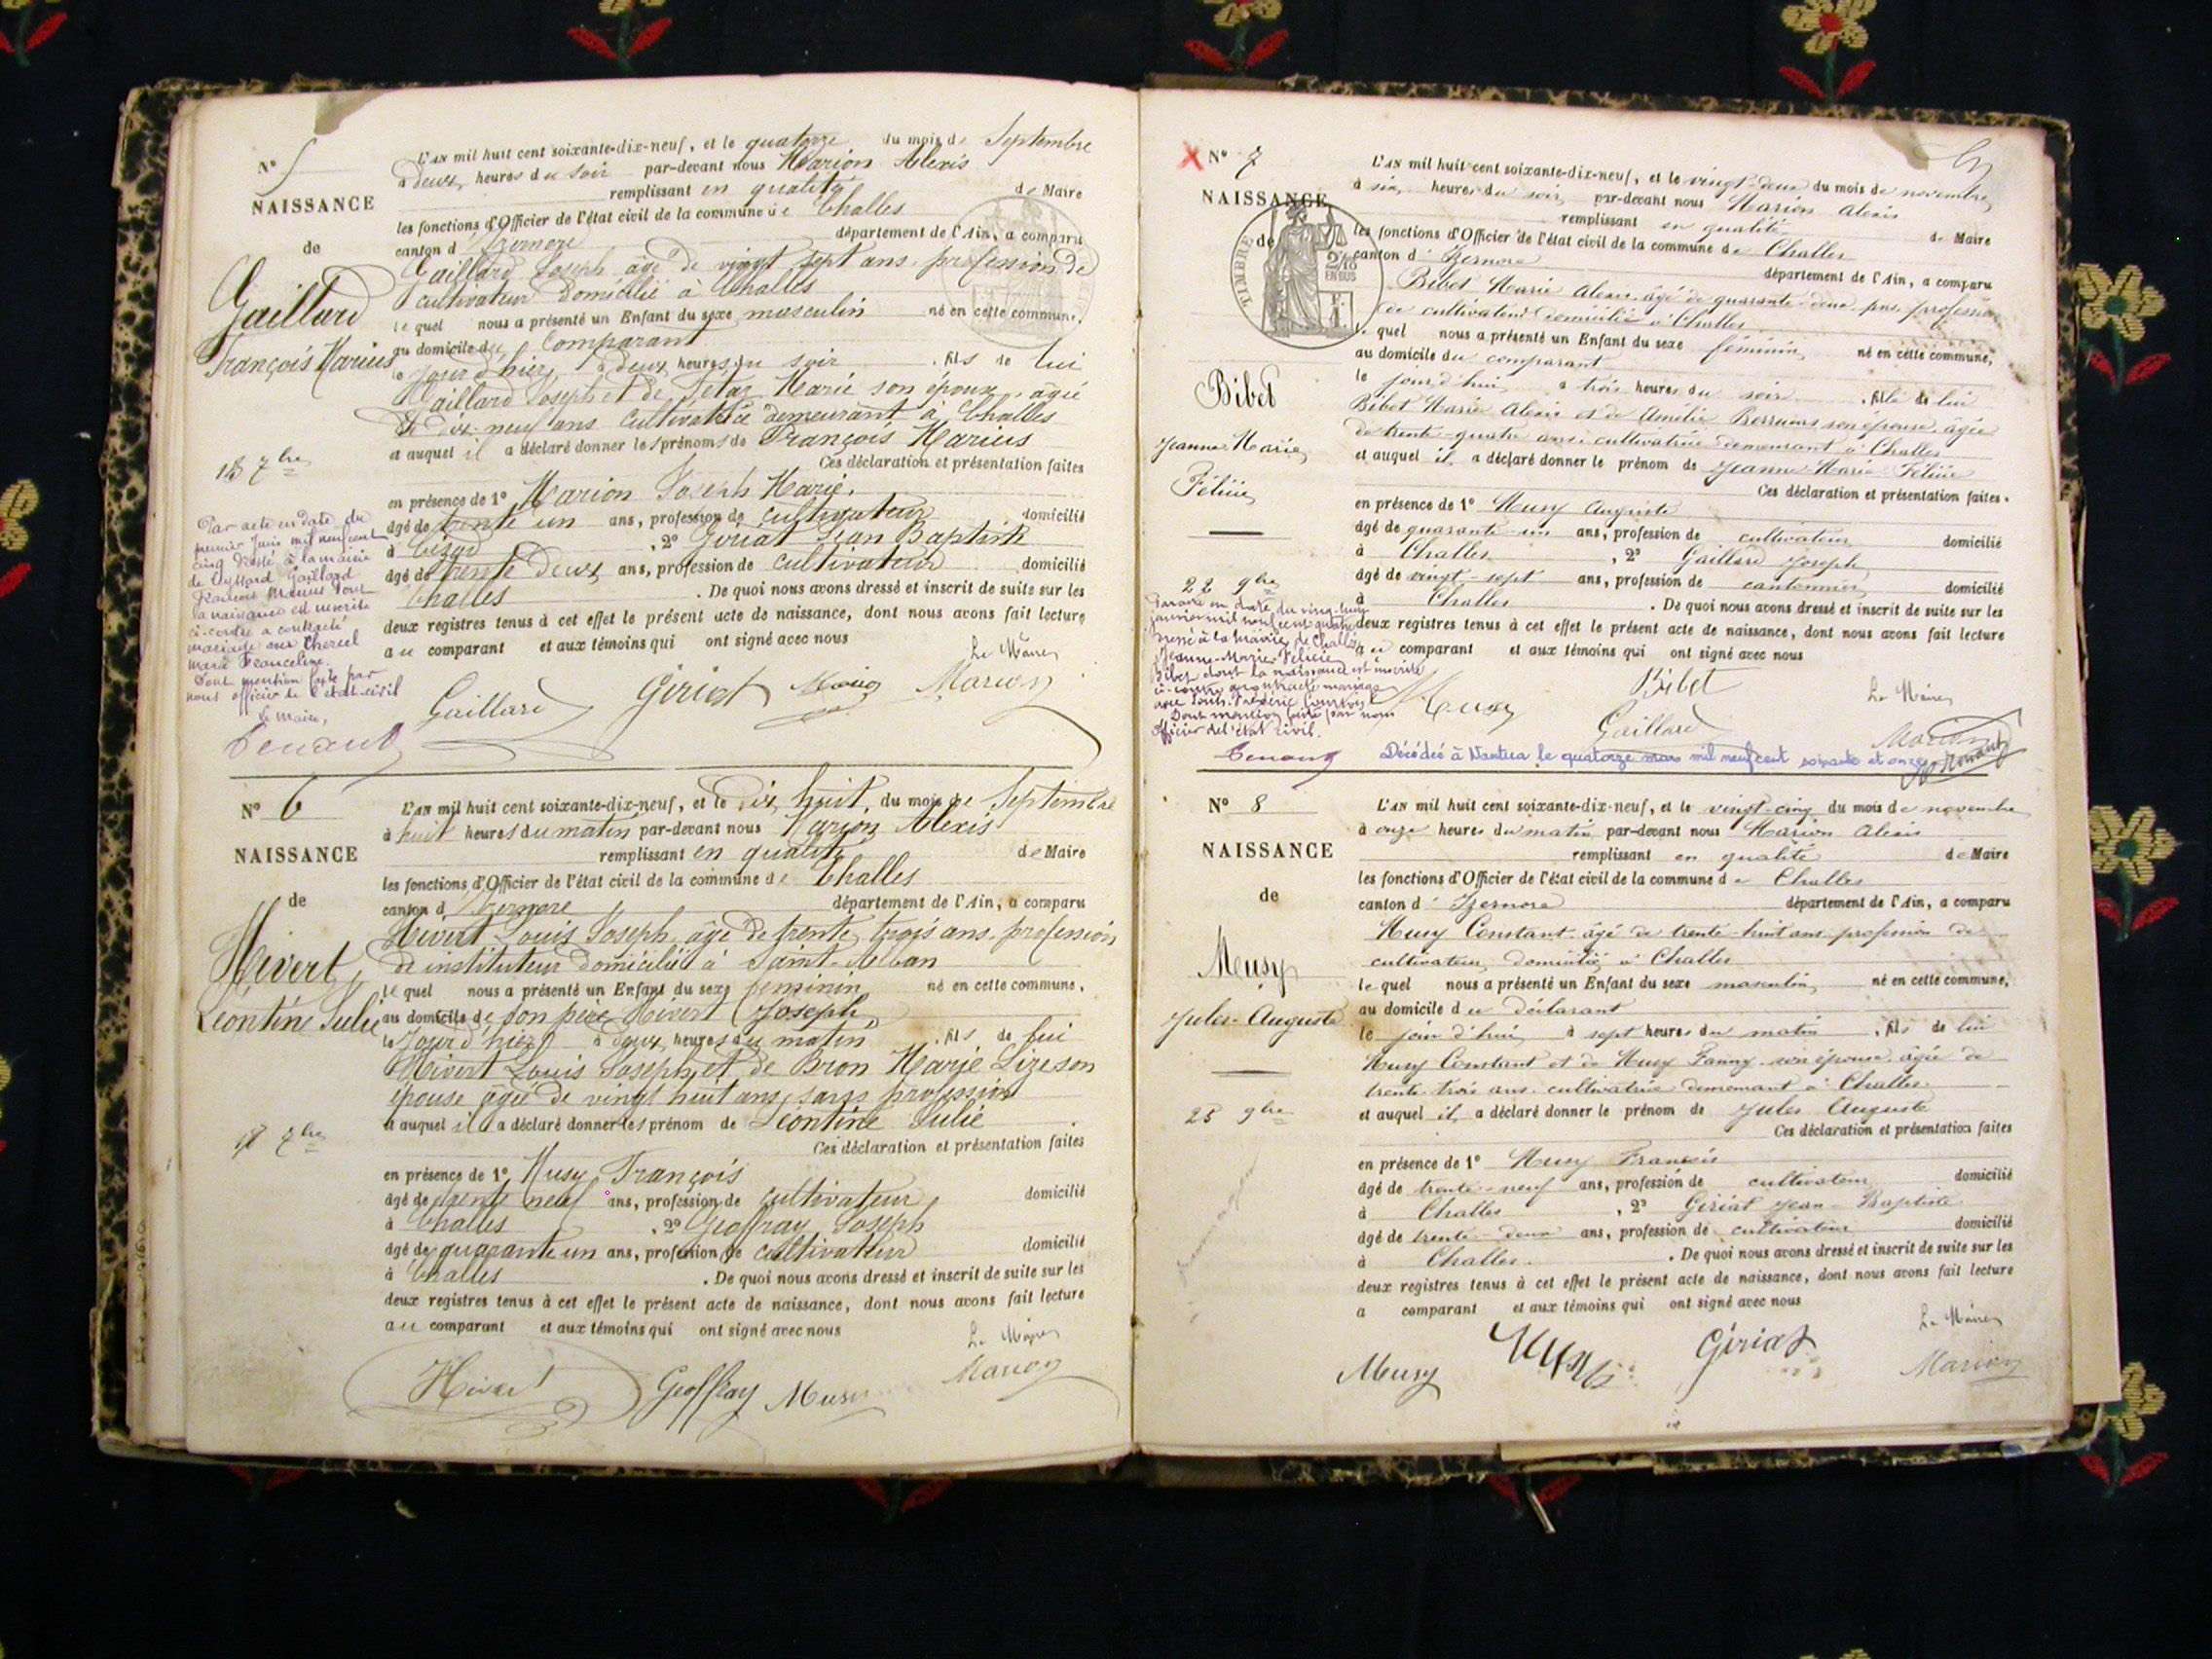 N° 5
NAISSANCE
de
Gaillard
François Marius
13 7bre
Par acte en date du
premier Juin mil neuf cent
cinq dressé à la mairie
de Gaillard
François Marius dont
la naissance est inscrite
ci-contre a contracté
mariage avec
Marie Franceline.
Dont mention faite par
nous officier de l'état-civil
Le Maire,
L'AN mil huit cent soixante-dix-neuf, et le quatorze du mois de Septembre
à deux heures du soir par-devant nous Marion Alexis
remplissant en qualité de Maire
les fonctions d'Officier de l'état civil de la commune de Challes
canton d'Izernore département de l'Ain, a comparu
Gaillard Joseph âgé de vingt sept ans profession de
cultivateur domicilié à Challes
le quel nous a présenté un Enfant du sexe masculin né en cette commune,
au domicile du Comparant
le jour d'hier à deux heures du soir , fils de lui
Gaillard Joseph et de Marie son épouse, agée
de dix-neuf ans cultivatrice demeurant à Challes
et auquel il a déclaré donner les prénoms de François Marius
Ces déclaration et présentation faites
en présence de 1° Marion Joseph Marie.
âgé de trente un ans, profession de cultivateur domicilié
à , 2° Giriat Jean Baptiste
âgé de trente deux ans, profession de cultivateur domicilié
Challes . De quoi nous avons dressé et inscrit de suite sur les
deux registres tenus à cet effet le présent acte de naissance, dont nous avons fait lecture
au comparant et aux témoins qui ont signé avec nous
Le Maire
Gaillard Giriat Marion
N° 6
NAISSANCE
de
Hivert
Léontine Julie
17 7bre
L'AN mil huit cent soixante-dix-neuf, et le dix huit, du mois de Septembre
à huit heures du matin par-devant nous Marion Alexis
remplissant en qualité de Maire
les fonctions d'Officier de l'état civil de la commune de Challes
canton d'Izernore département de l'Ain, a comparu
Hivert Louis Joseph âgé de trente trois ans profession
de instituteur domicilié à Saint-Alban
le quel nous a présenté un Enfant du sexe féminin né en cette commune,
au domicile de son père Hivert Joseph
le Jour d'hier à deux heures du matin , fils de lui
Hivert Louis Joseph et de Bron Marie Lize son
épouse agée de vingt huit ans, sans profession
et auquel il a déclaré donner les prénom de Léontine Julie
Ces déclaration et présentation faites
en présence de 1° Musy François
âgé de trente neuf ans, profession de cultivateur domicilié
à Challes , 2° Geoffray Joseph
âgé de quarante un ans, profession de cultivateur domicilié
à Challes . De quoi nous avons dressé et inscrit de suite sur les
deux registres tenus à cet effet le présent acte de naissance, dont nous avons fait lecture
au comparant et aux témoins qui ont signé avec nous
Le Maire
Hivert Geoffray Musy Marion
X N° 7
NAISSANCE
de
TIMBRE
2/10
EN SUS
Bibet
Jeanne Marie
Félicie
22 9bre
Par acte en date du
janvier mil neuf cent quatre
dressé à la mairie de Challes
Jeanne-Marie-Félicie
Bibet dont la naissance est inscrite
ci-contre a contracté mariage
avec Louis Frédéric
Dont mention faite par nous
Officier de l'état civil.
L'AN mil huit cent soixante-dix-neuf, et le vingt-deux du mois de novembre
à six heures du soir par-devant nous Marion Alexis
remplissant en qualité de Maire
les fonctions d'Officier de l'état civil de la commune de Challes
canton d'Izernore département de l'Ain, a comparu
Bibet Marie Alexis âgé de quarante-deux ans profession
de cultivateur domicilié à Challes
le quel nous a présenté un Enfant du sexe féminin né en cette commune,
au domicile du comparant
le jourd'hui à trois heures du soir , fille de lui
Bibet Marie Alexis et de Amélie son épouse, agée
de trente-quatre ans cultivatrice demeurant à Challes
et auquel il a déclaré donner le prénom de Jeanne-Marie Félicie
Ces déclaration et présentation faites
en présence de 1° Musy Auguste
âgé de quarante-un ans, profession de cultivateur domicilié
à Challes , 2° Gaillard Joseph
âgé de vingt-sept ans, profession de cantonnier domicilié
à Challes . De quoi nous avons dressé et inscrit de suite sur les
deux registres tenus à cet effet le présent acte de naissance, dont nous avons fait lecture
au comparant et aux témoins qui ont signé avec nous
Musy Bibet Le Maire
Gaillard Marion
Décédée à Nantua le quatorze mars mil neuf cent soixante et onze
N° 8
NAISSANCE
de
Musy
Jules-Auguste
25 9bre
L'AN mil huit cent soixante-dix-neuf, et le vingt-cinq du mois de novembre
à onze heures du matin par-devant nous Marion Alexis
remplissant en qualité de Maire
les fonctions d'Officier de l'état civil de la commune de Challes
canton d'Izernore département de l'Ain, a comparu
Musy Constant âgé de trente-huit ans profession de
cultivateur domicilié à Challes
le quel nous a présenté un Enfant du sexe masculin né en cette commune,
au domicile du déclarant
le jour d'hui à sept heures du matin , fils de lui
Musy Constant et de Musy Fanny son épouse, âgée de
trente trois ans cultivatrice demeurant à Challes
et auquel il a déclaré donner le prénom de Jules Auguste
Ces déclaration et présentation faites
en présence de 1° Musy Francois
âgé de trente-neuf ans, profession de cultivateur domicilié
à Challes , 2° Giriat Jean-Baptiste
âgé de trente-deux ans, profession de cultivateur domicilié
à Challes . De quoi nous avons dressé et inscrit de suite sur les
deux registres tenus à cet effet le présent acte de naissance, dont nous avons fait lecture
a comparant et aux témoins qui ont signé avec nous
Le Maire
Musy Musy Giriat Marion